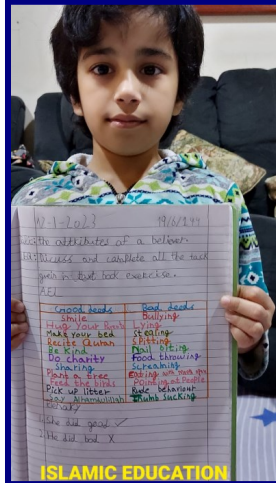 12-1-2023 19/6/1444
the attributes of a believer.
Discuss and complete all the task
given in text book exercise.
Good deeds Bad deeds
Smile Bullying
Hug your Lying
Make your bed Stealing
Recite Quran Spitting
Be kind Nail biting
Do charity Food throwing
Sharing Screaming
Plant a tree Eating with mouth open
Feed the birds Pointing at People
Pick up litter Rude behaviour
Say Alhamdulillah Thumb sucking
She did good ✓
He did bad X
ISLAMIC EDUCATION